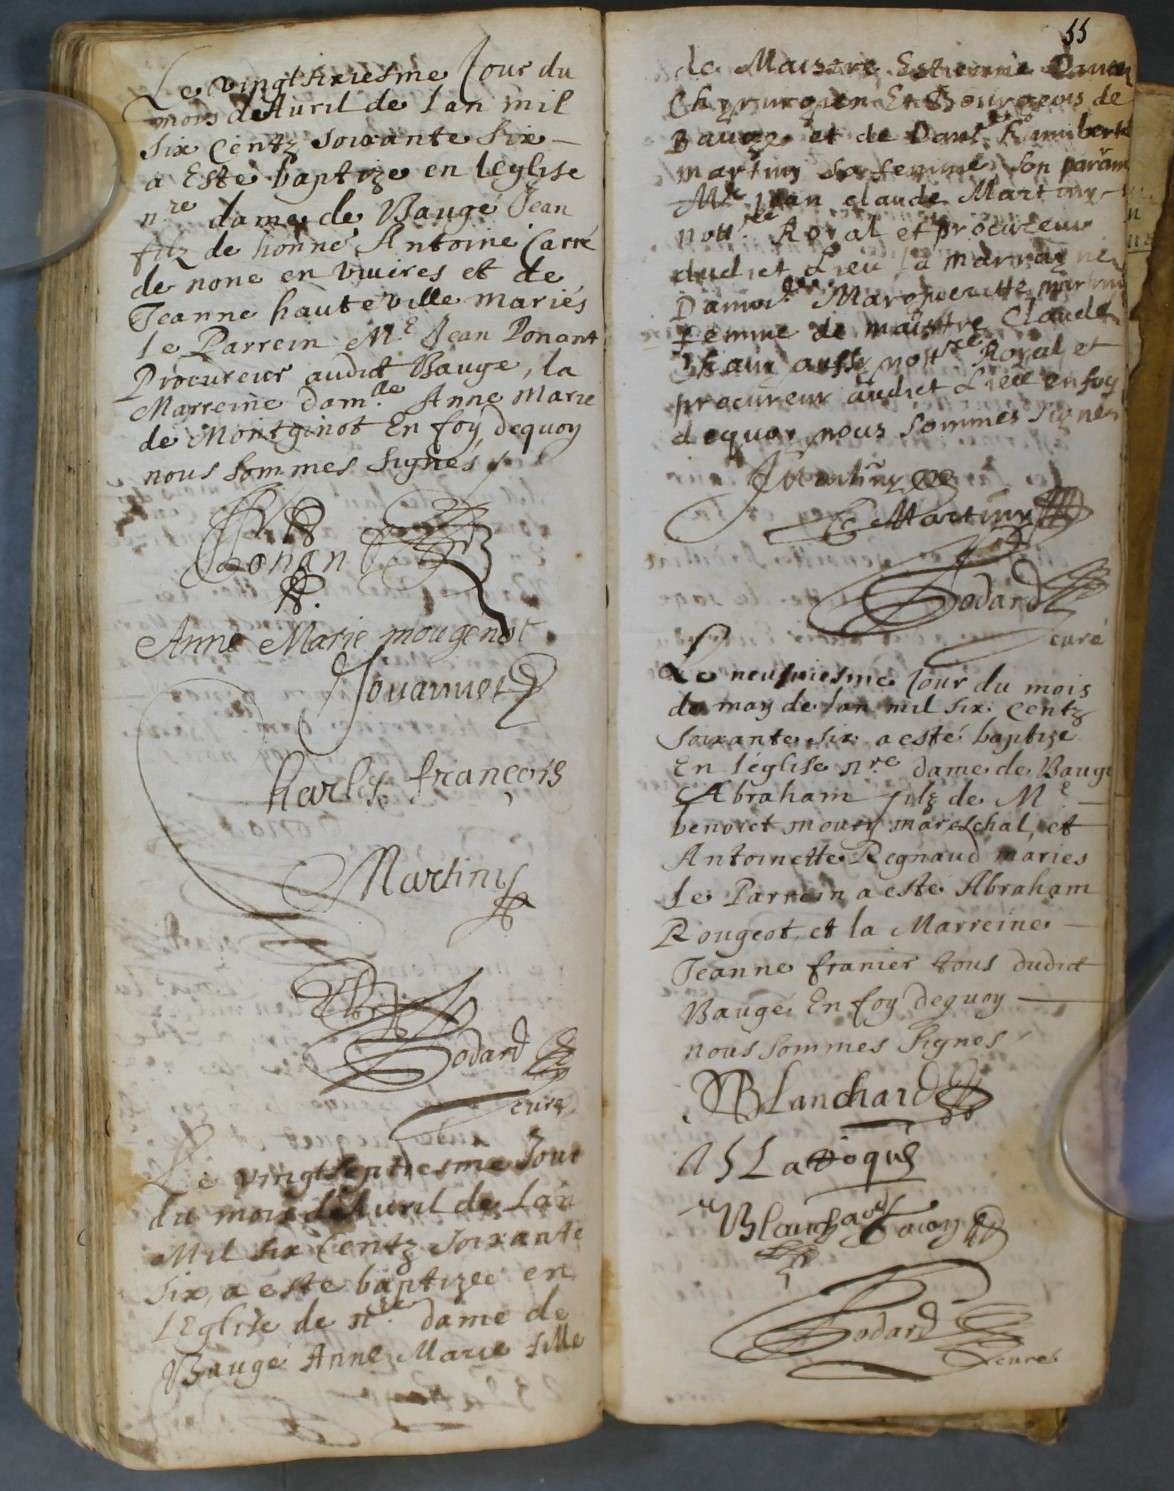 Le vingtsixiesme Jour du
mois d'Auril de lan mil
six centz soixante six
a Esté baptize en leglise
nre dame de Baugé Jean
filz de honne Antoine Carré
de none en et de
Jeanne hauteville mariés
Le Parrein Me Jean Ponant
Procureur audict Baugé, la
Marreine damlle Anne Marie
de Montginot En foy dequoy
nous sommes signés
Ponan
Anne Marie mougenot
Jouannet
Charles françois
Martiny
Godard
curé
Le vingtseptiesme Jour
du mois d'Auril de Lan
Mil six Centz soixante
six, a este baptizée en
LEglise de nre dame de
Baugé Anne Marie fille
55
de Maistre Estienne
Chyrurgien Et Bourgeois de
Baugé et de
martiny sa femme, son parain
Me Jean claude Martiny
nottre Royal et procureur
dudict Lieu la marrayne
Damoislle Margueritte martiny
femme de maistre Claude
aussy nottre Royal et
procureur audict Lieu en foy
dequoy nous sommes signes
Martiny
Martiny
Godard
curé
Le neufuiesme Jour du mois
de may de lan mil six centz
soixante six a esté baptize
En léglise nre dame de Baugé
Abraham filz de Me
benoict moury mareschal, et
Antoinette Regnaud mariés
Le Parrein a esté Abraham
Rougeot et la Marreine
Jeanne franier tous dudict
Baugé En foy dequoy
nous sommes signes
Blanchard
Blanchard
Godard
curé